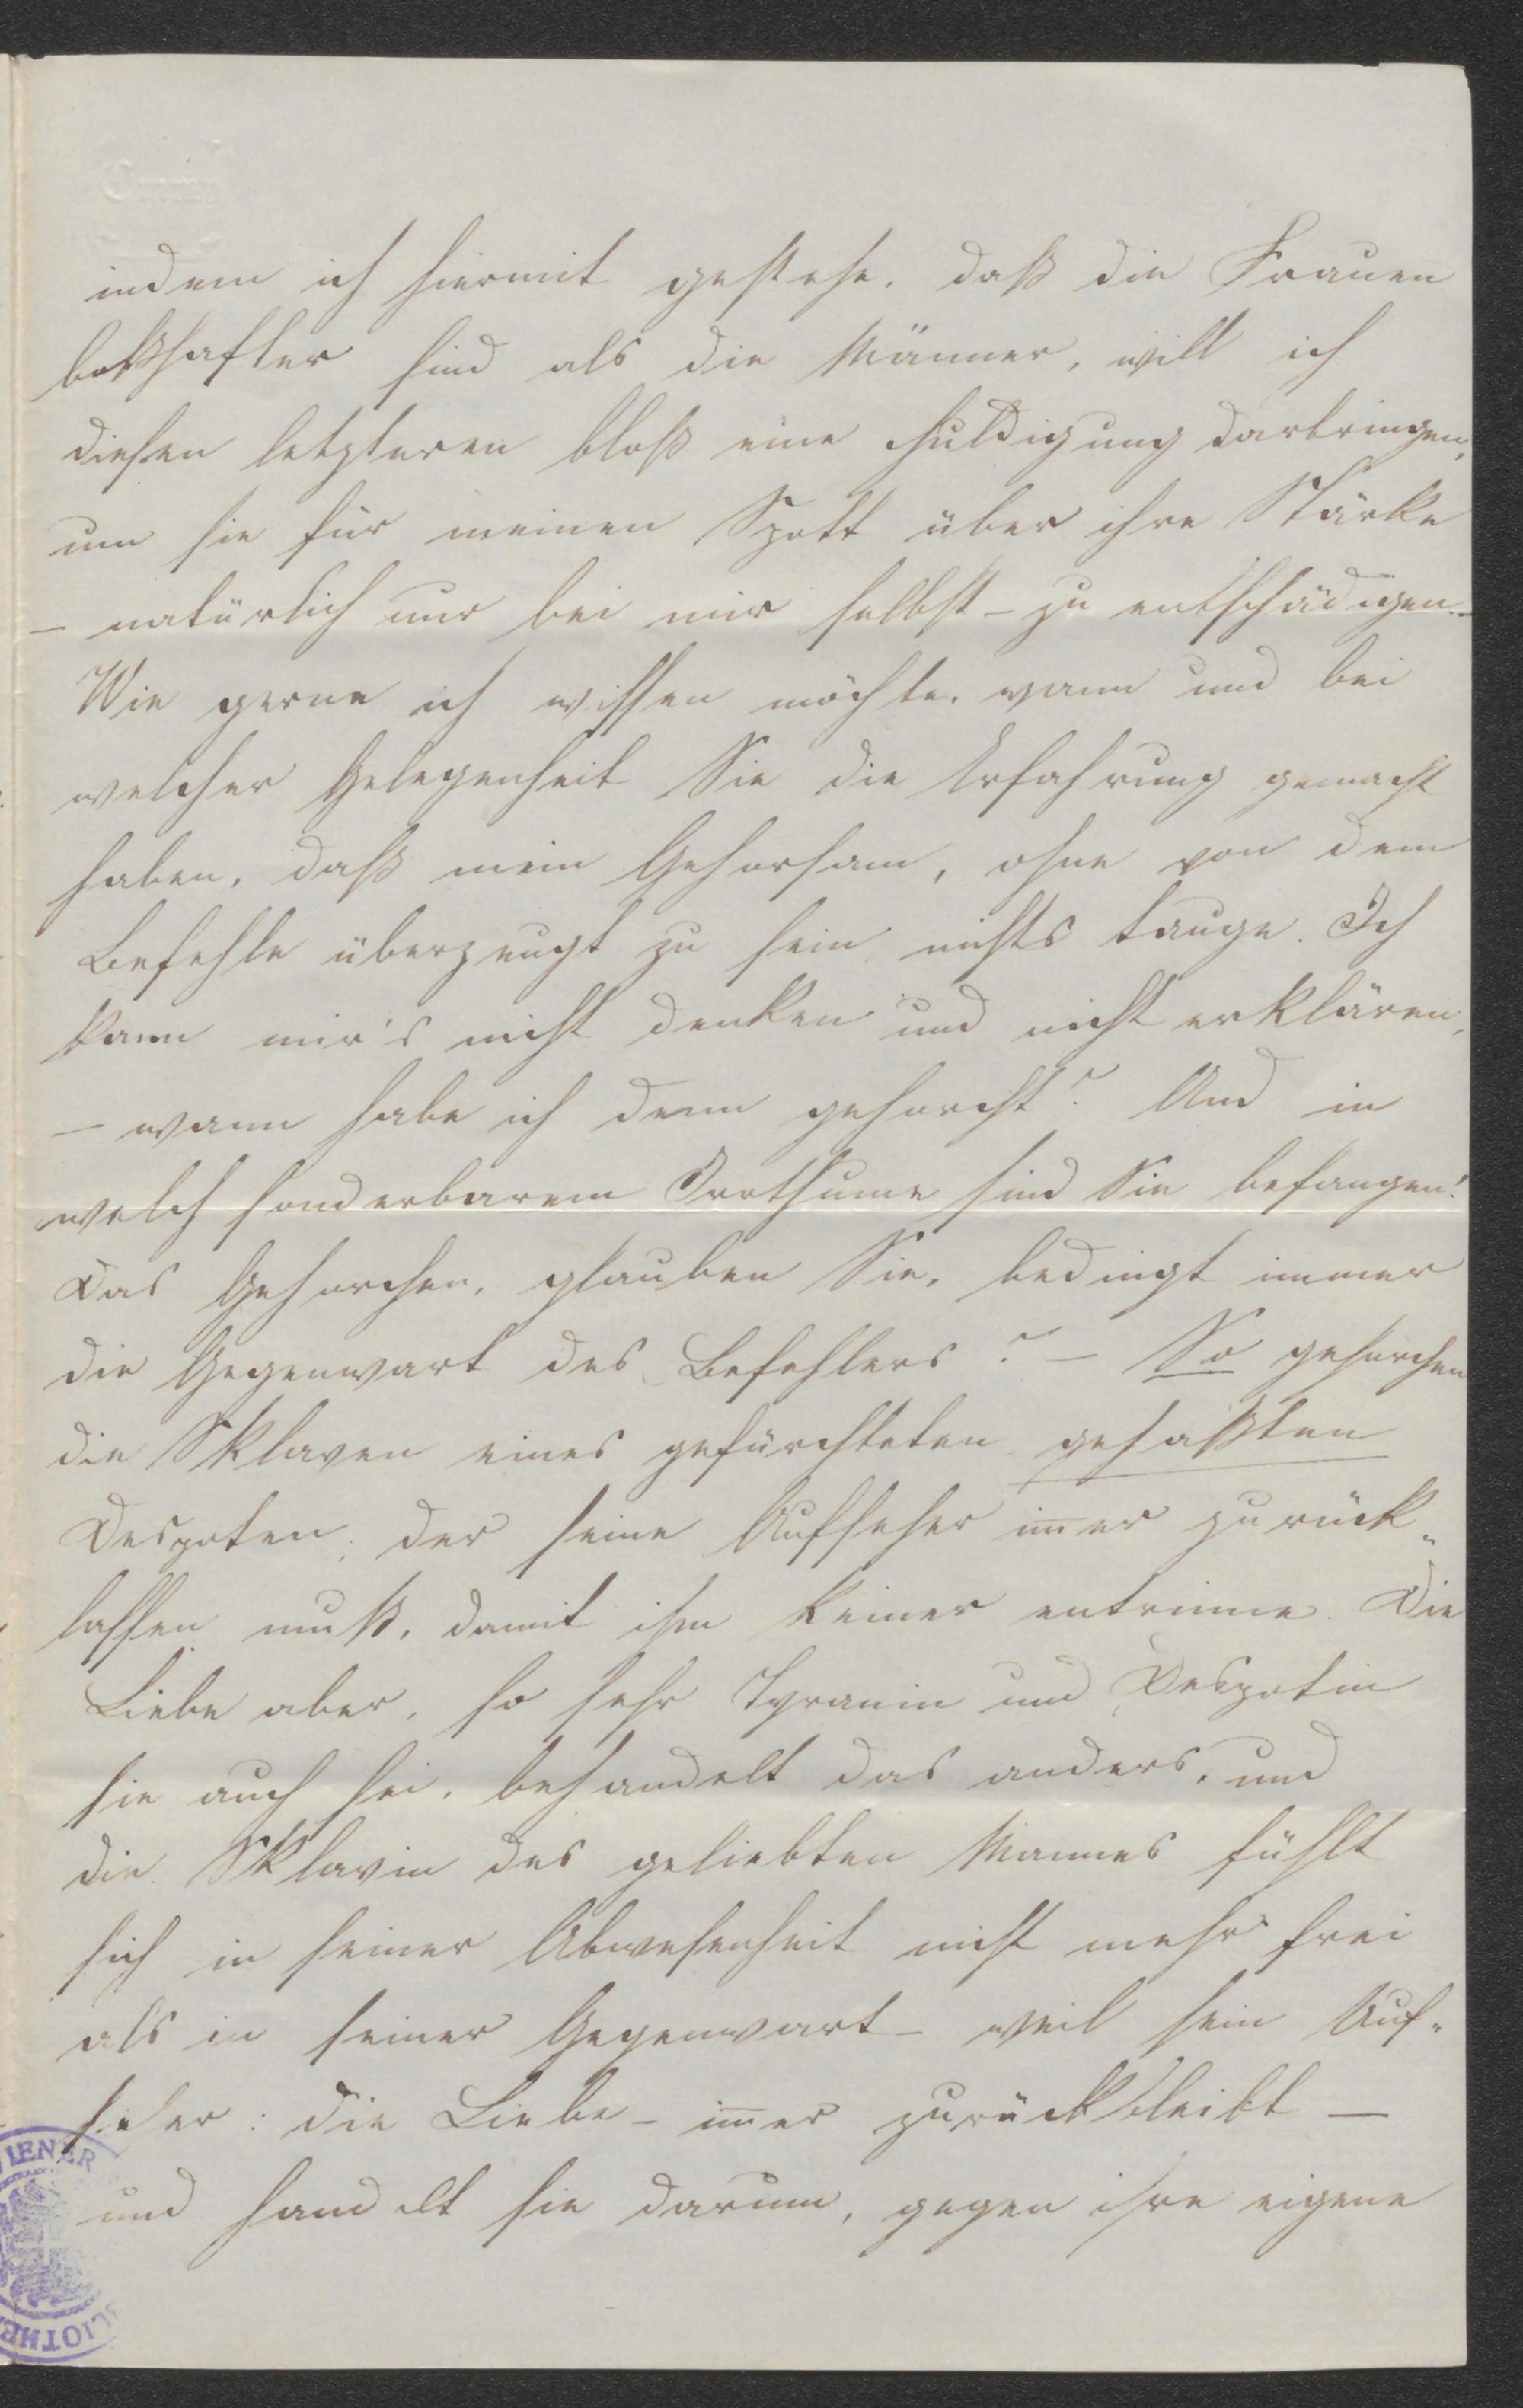 indem ich hiermit gestehe, daß die Frauen
boßhafter sind als die Männer, will ich
diesen letzteren bloß eine Huldigung darbringen,
um sie für meinen Spott über ihre Stärke
– natürlich nur bei mir selbst – zu entschädigen. –
Wie gerne ich wissen möchte, wann und bei
welcher Gelegenheit Sie die Erfahrung gemacht
haben, daß mein Gehorsam, ohne von dem
Befehle überzeugt zu sein nichts tauge. Ich
kann mir's nicht denken und nicht erklären,
– wann habe ich denn gehorcht? Und in
welch sonderbarem Irrthume sind Sie befangen!
Das Gehorchen, glauben Sie, bedingt immer
die Gegenwart des Befehlers? – So gehorchen
die Sklaven eines gefürchteten gehaßten
Despoten, der seine Aufseher im̅er zurück„
lassen muß, damit ihm keiner entrinne. Die
Liebe aber, so sehr Tyranin und Despotin
sie auch sei, behandelt das anders, und
die Sklavin des geliebten Mannes fühlt
sich in seiner Abwesenheit nicht mehr frei
als in seiner Gegenwart – weil sein Auf„
seher: die Liebe – im̅er zurückbleibt –
und handelt sie darum, gegen ihre eigene
WIENER
BLIOTHEK